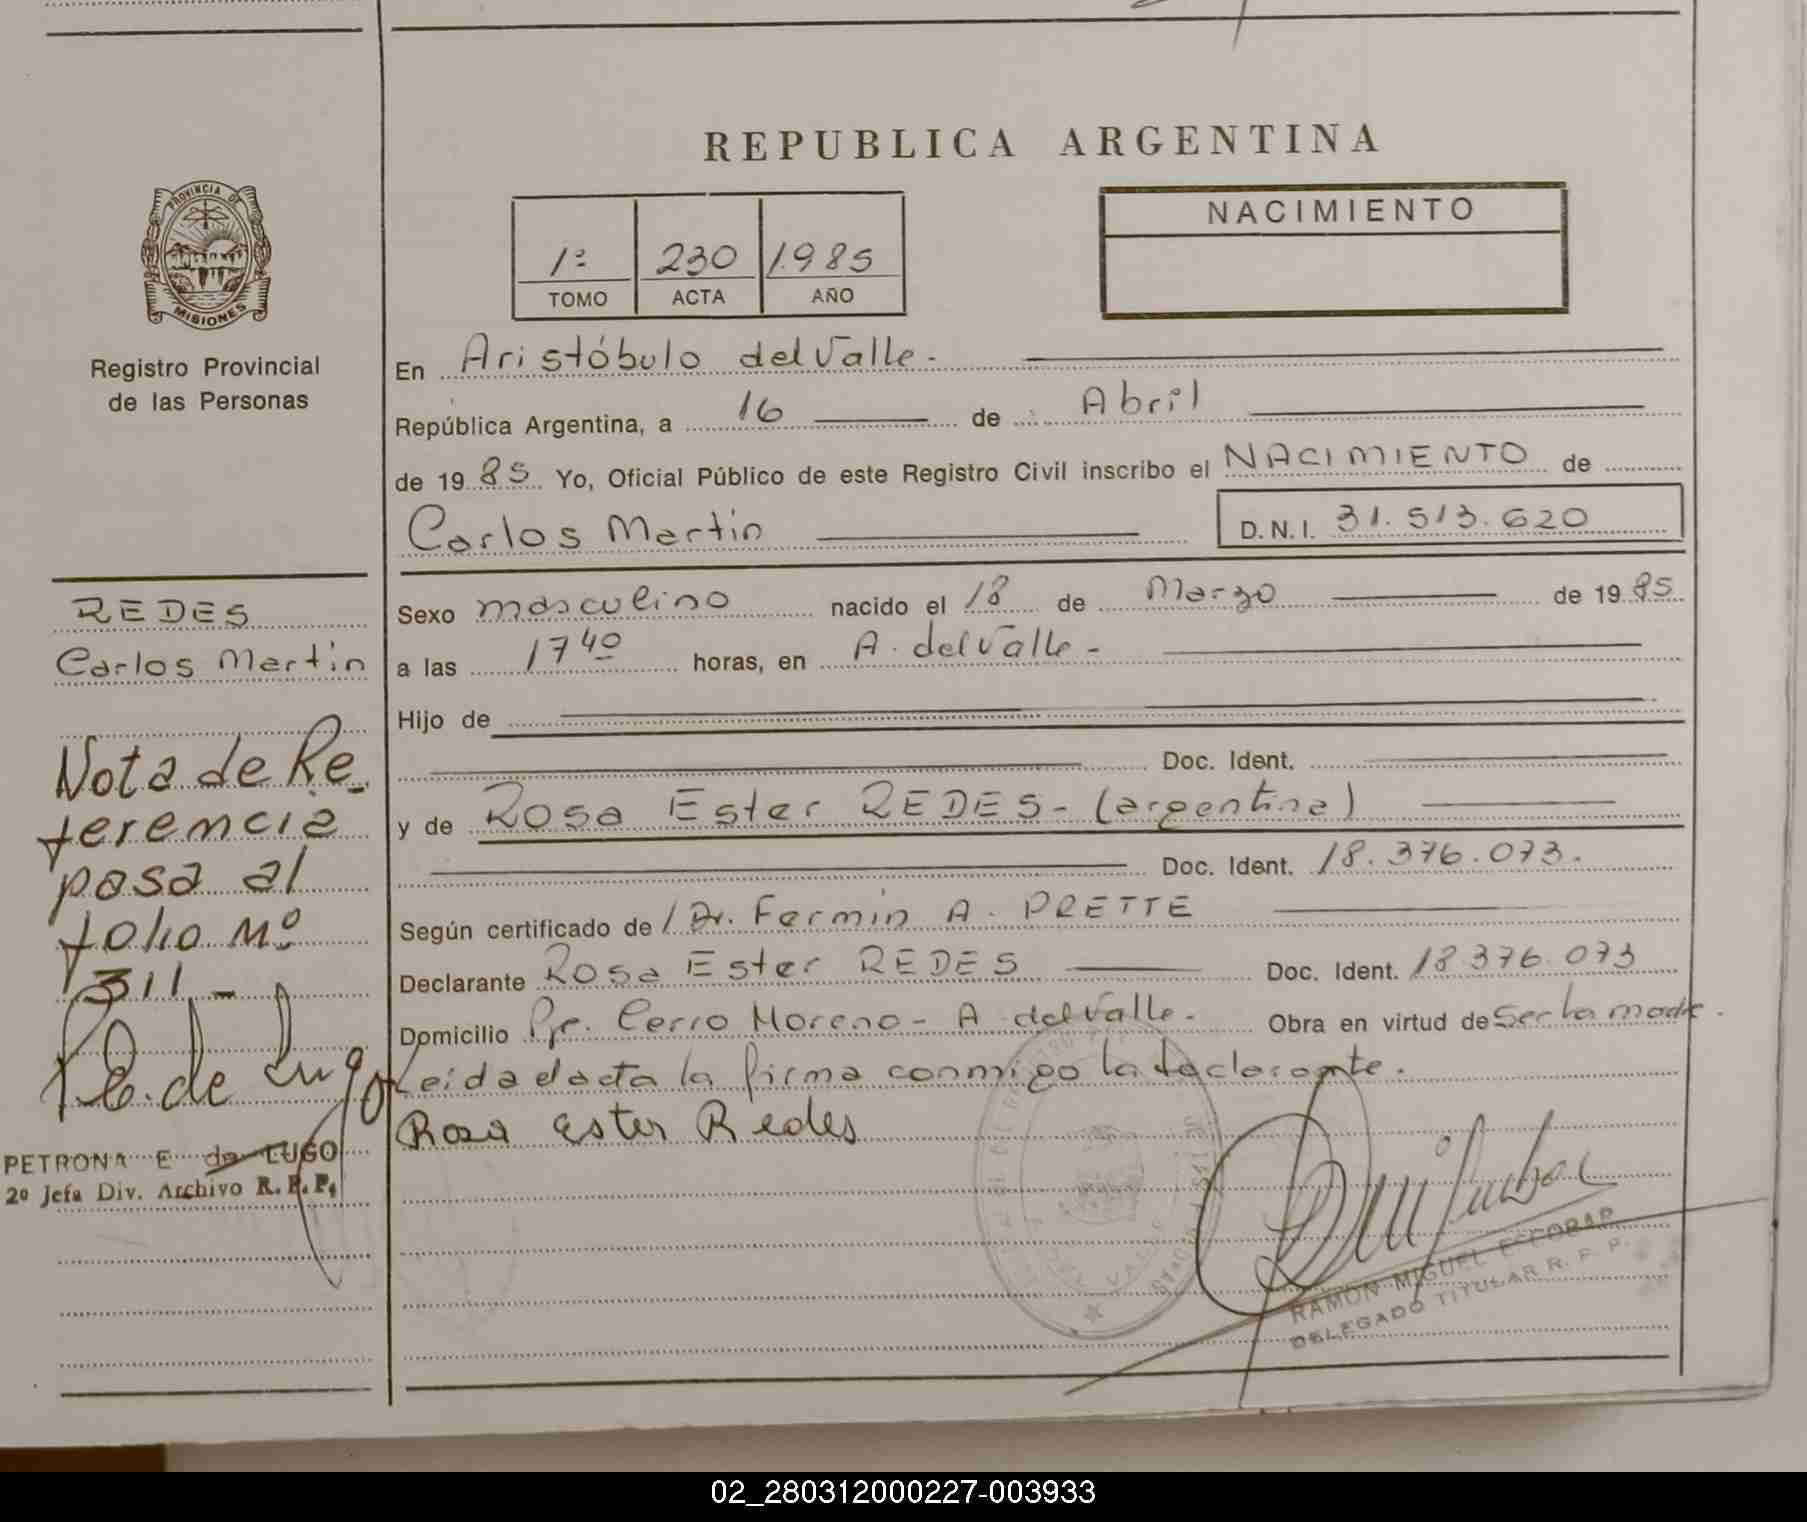 REPUBLICA ARGENTINA
PROVINCIA DE
MISIONES
Registro Provincial
de las Personas
1º 230 1.985
TOMO ACTA AÑO
NACIMIENTO
En Aristóbulo del Valle.-
República Argentina, a 16 de Abril
de 1985 Yo, Oficial Público de este Registro Civil inscribo el NACIMIENTO de
Carlos Martin D.N.I. 31.513.620
Sexo masculino nacido el 18 de Marzo de 1985
a las 17 40 horas, en A. del Valle-
Hijo de
Doc. Ident.
y de Rosa Ester REDES- (argentina)
Doc. Ident. 18.376.073.
Según certificado de Dr. Fermin A. PRETTE
Declarante Rosa Ester REDES Doc. Ident. 18376.073
Domicilio Pje. Cerro Moreno- A del Valle. Obra en virtud de Ser la madre.
Leída el acta la firma conmigo la declarante.
Rosa Ester Redes
RAMON MIGUEL ESCOBAR
DELEGADO TITULAR R. P. P.
REDES
Carlos Martin
Nota de Re
ferencia
pasa al
folio Nº
311-
P. E. de Lugo
PETRONA E de LUGO
2º Jefa Div. Archivo R. P. P.
02_280312000227-003933